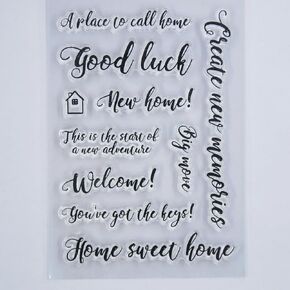 A place to call home
Good luck
New home!
This is the start of
a new adventure
Big move
Welcome!
You've got the keys!
Home sweet home
Create new memories